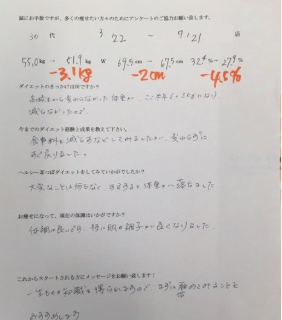 誠にお手数ですが、多くの痩せたい方々のためにアンケートのご協力お願い致します。
30代 3/22 ー 7/21 店
55.0kg ー 51.9kg W 69.5cm ー 67.5cm 32.4% ー 27.9%
-3.1kg -2cm -4.5%
ダイエットのきっかけは何ですか？
減らなかったので
今までのダイエット経験と成果を教えて下さい。
食事制限 減らすなどしてみましたが、
戻りました。
ヘルシー茶っぽダイエットをしてみていかがでしたか？
大変なことは何もなく するすると体重が落ちました
お痩せになって、現在の体調はいかがですか？
体調は良いです。特に肌の調子が良くなりました。
これからスタートされる方にメッセージをお願い致します！
一生ものの知識を得られますので まずは始めてみることを
おすすめします